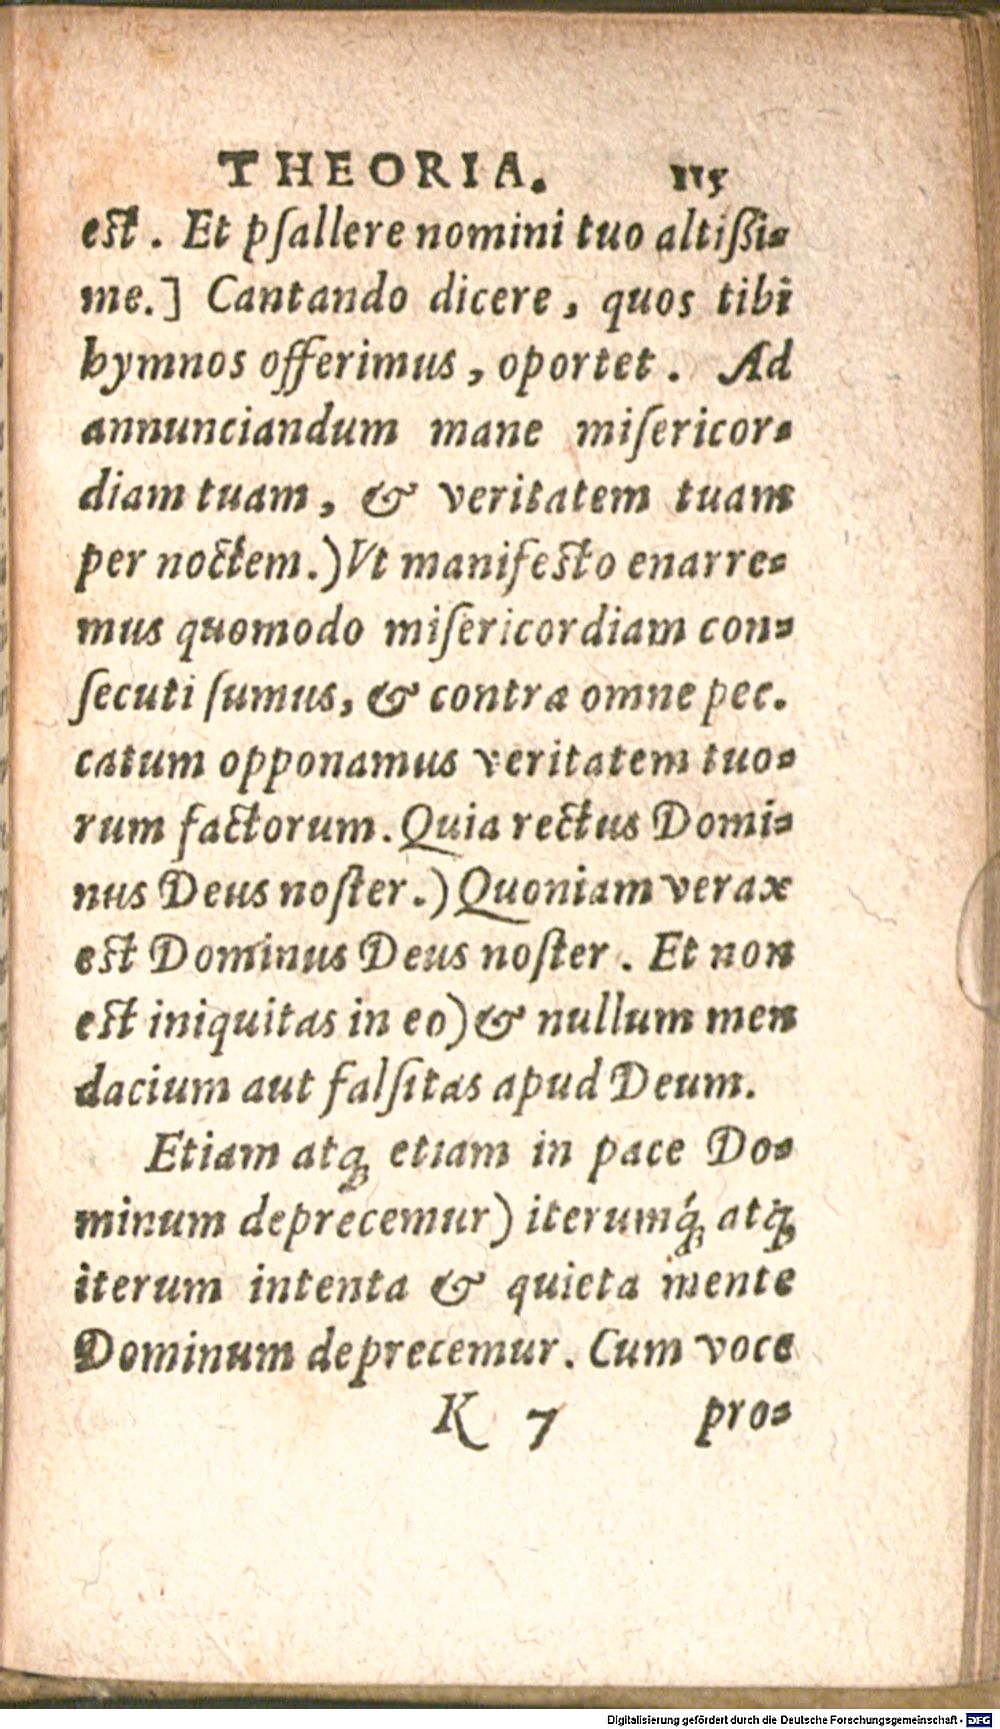 THEORIA. 115
est. Et pſallere nomini tuo altißi-
me.] Cantando dicere, quos tibi
hymnos offerimus, oportet. Ad
annunciandum mane miſericor-
diam tuam, & veritatem tuam
per noctem.) Vt manifesto enarre-
mus quomodo miſericordiam con-
ſecuti ſumus, & contra omne pec.
catum opponamus veritatem tuo-
rum factorum. Quia rectus Domi-
nus Deus noſter.) Quoniam verax
est Dominus Deus noſter. Et non
est iniquitas in eo) & nullum men
dacium aut falſitas apud Deum.
Etiam atq; etiam in pace Do-
minum deprecemur) iterumq́; atq;
iterum intenta & quieta mente
Dominum deprecemur. Cum voce
K 7 pro-
Digitalisierung gefördert durch die Deutsche Forschungsgemeinschaft - DFG